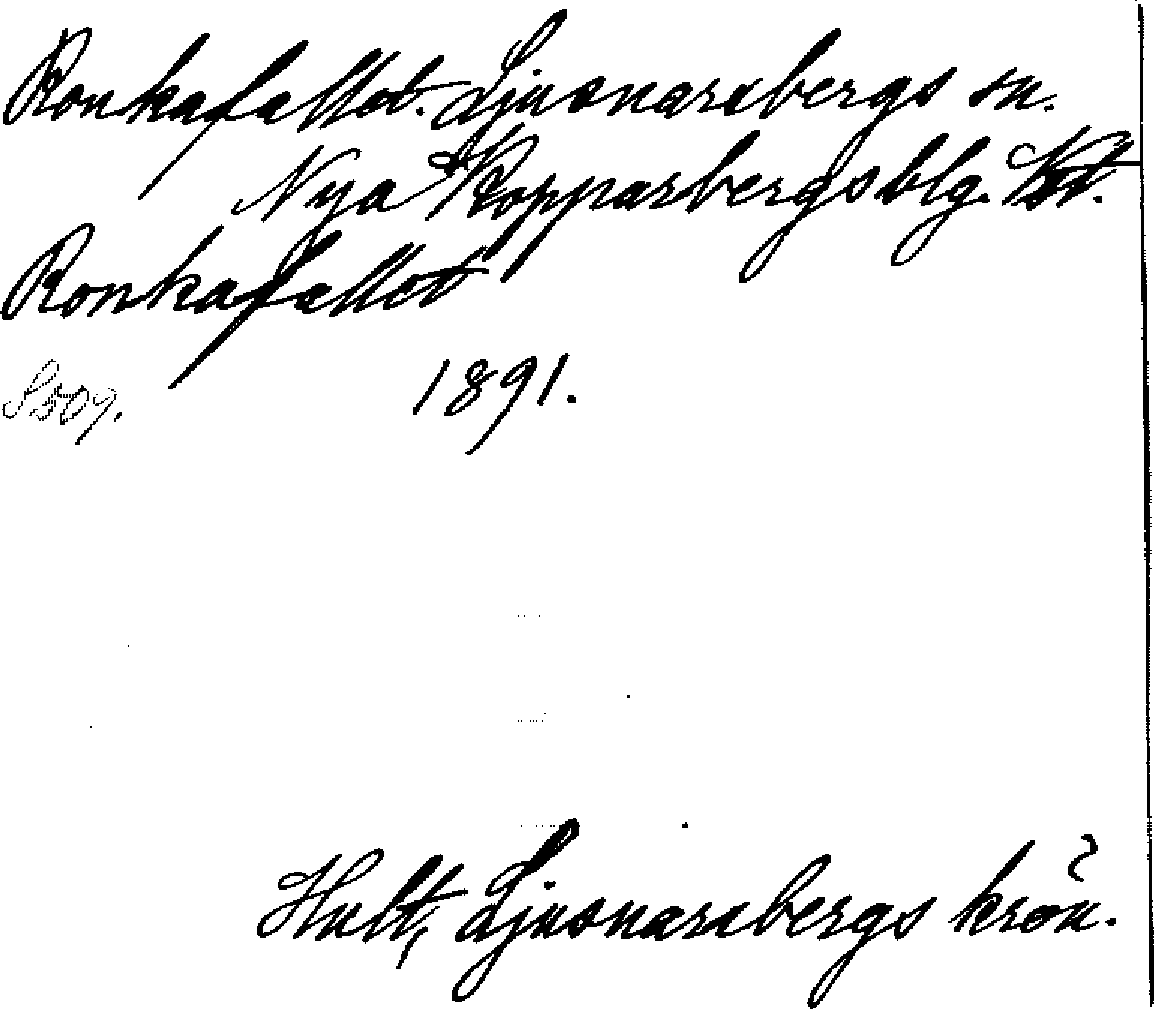 Ronkafallet. Ljusnarsbergs sn.
Nya Kopparbergs blg.
Ronkafallet
1891.
Hult, Ljusnarsbergs krön.